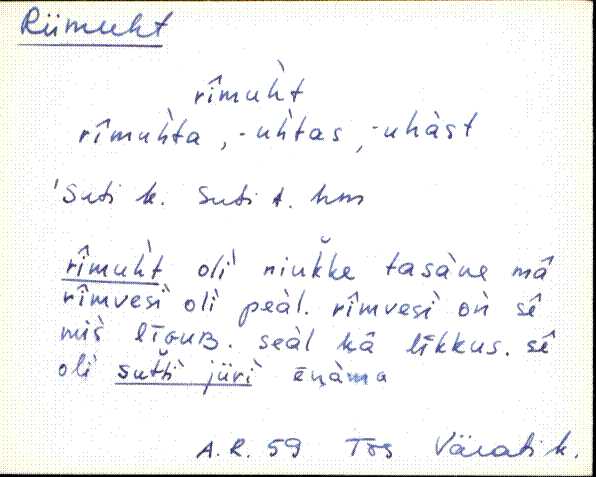 Riimuht
rîmuh̀t
rîmuh̀ta, -uh̀tas, -uhàst
'Suti k. Suti t. hm
rîmuh̀t olì niuk̆ke tasàne mâ
rîmvesì olì peàl. rîmvesì oǹ sê
mis̀ līɢuʙ. seàl kâ līkkus. sê
olì sut̆ti jürì ēn̬àma
A.R. 59 Tõs Värati k.